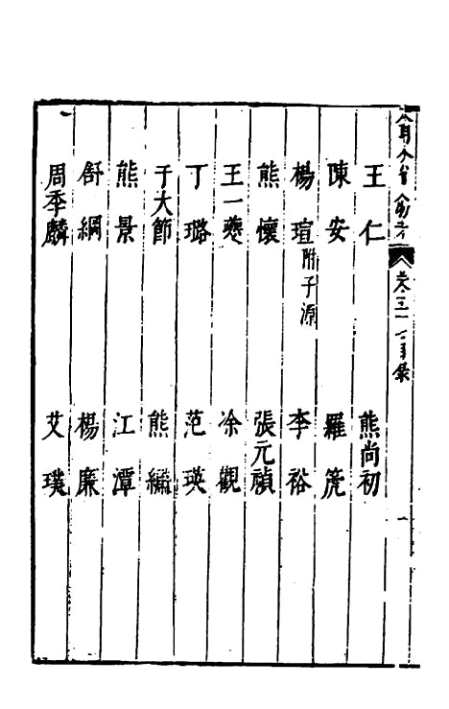 王仁　熊尚初
陳安　羅箎
楊瑄附子源　李裕
熊懷　張元禎
王一夔　凃觀
丁璐　范瑛
于大節　熊繡
熊景　江潭
舒綱　楊廉
周季麟　艾璞
卷三目錄